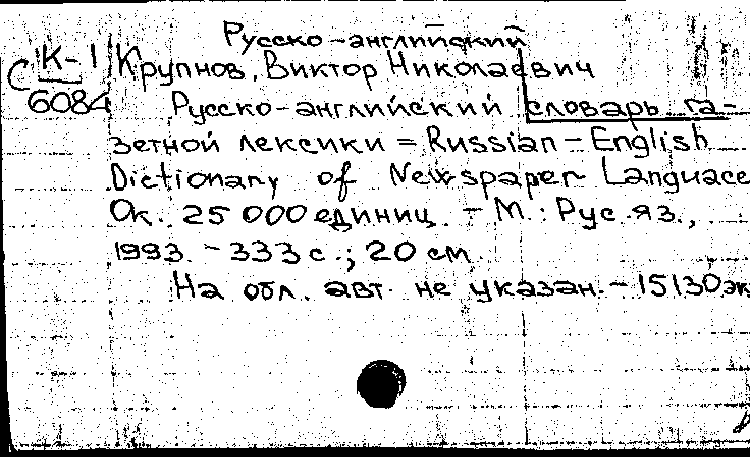 Русско-английский
К-1
С
6084
Крупнов, Виктор Николаевич
Русско-английский словарь га-
зетной лексики = Russian-English
Dictionary of Newspaper Languace
Ок. 25 000 единиц. - М.: Рус. яз.,
1993. - 333 с.; 20 см.
На обл. авт. не указан. - 15130 эк